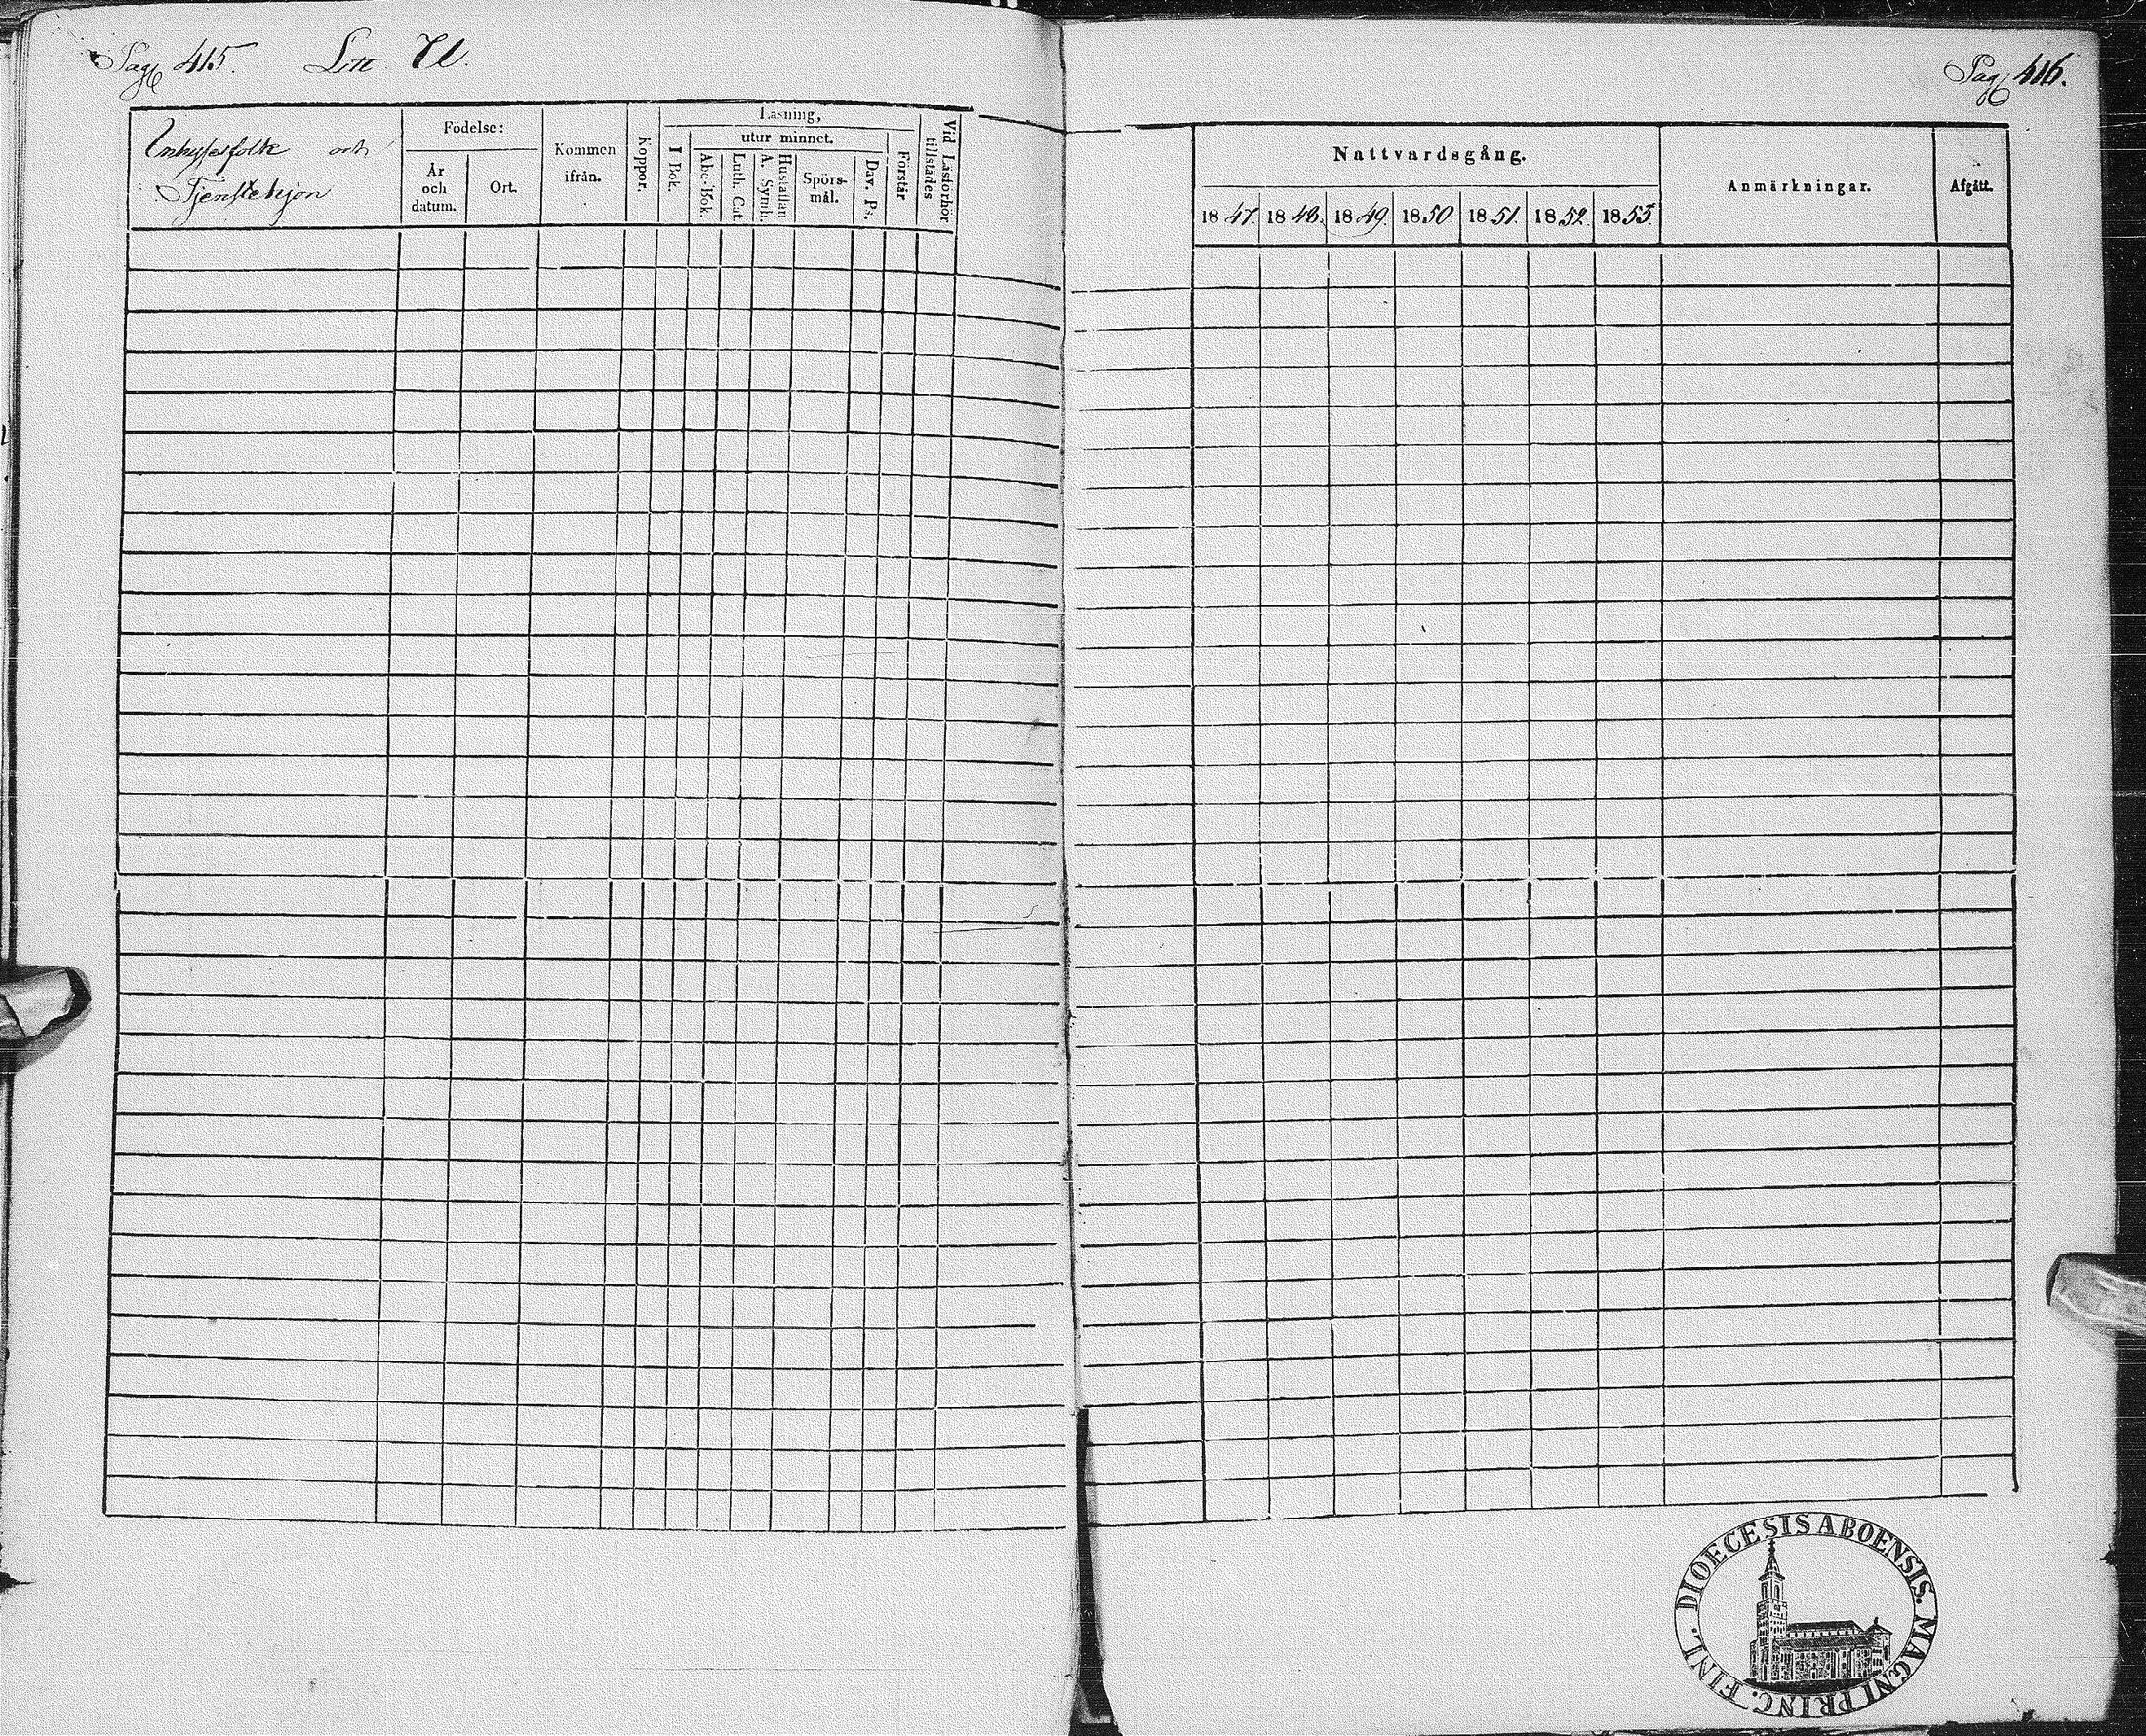 Pag 415. Litt U.
Inhysesfolk och
Tjenstehjon
Födelse:
År
och
datum.
Ort.
Kommen
ifrån.
Koppor.
Läsning,
I Bok.
utur minnet.
Abc-Bok.
Luth. Cat.
Hustaflan
A. Symb.
Spörs-
mål.
Dav. Ps.
Förstår
Vid Läsförhör
tillstädes
Pag 416.
Nattvardsgång.
1847. 1848. 1849. 1850. 1851. 1852. 1853.
Anmärkningar.
Afgått.
DIOECESIS ABOENSIS. MAGNI PRINC. FINL.